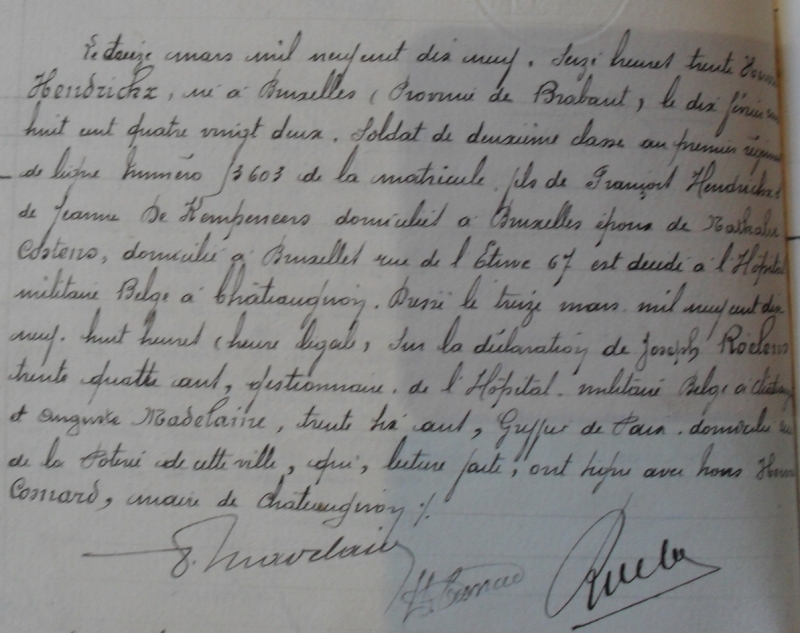 Le treize mars mil neuf cent dix neuf. Seize heures trente
Hendrickx, né à Bruxelles (Province de Brabant, le dix février
huit cent quatre vingt deux. Soldat de deuxième classe au premier régiment
de ligne numéro 13603 de la matricule, fils de François Hendrickx
de Jeanne De Kempeneers domiciliés à Bruxelles époux de Nathalie
Costens, domicilié à Bruxelles rue de l'Etuve 67 est décédé à l'Hôpital
militaire Belge à Châteaugiron. Dressé le treize mars mil neuf cent dix
neuf. huit heures (heure légale, Sur la déclaration de Joseph Roelens
trente quatre ans, gestionnaire de l'Hôpital militaire Belge à
et Auguste Madelaine, trente six ans, Greffier de Paix domicilié
de la Poterie de cette ville, qui, lecture faite, ont signé avec nous
Comard, maire de Châteaugiron ./.